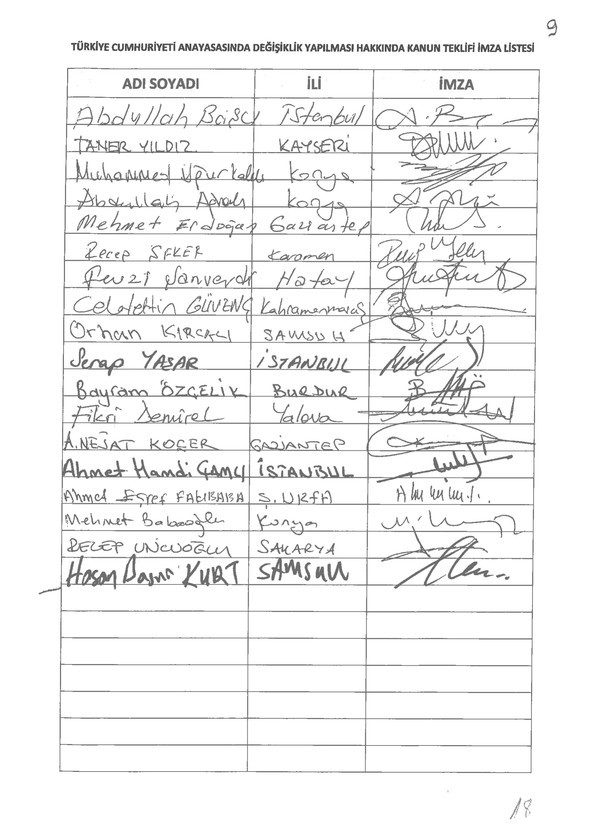 9
TÜRKİYE CUMHURİYETİ ANAYASASINDA DEĞİŞİKLİK YAPILMASI HAKKINDA KANUN TEKLİFİ İMZA LİSTESİ
ADI SOYADI İLİ İMZA
Abdullah Başcı İstanbul
TANER YILDIZ KAYSERİ
Muhammed Uğur Kaleli Konya
Abdullah Konya
Mehmet Erdoğan Gaziantep
Recep ŞEKER Karaman
Fevzi Şanverdi Hatay
Celalettin GÜVENÇ Kahramanmaraş
Orhan KIRCALI SAMSUN
Serap YAŞAR İSTANBUL
Bayram ÖZÇELİK BURDUR
Fikri Demirel Yalova
A. NEJAT KOÇER GAZİANTEP
Ahmet Hamdi ÇAMLI İSTANBUL
Ahmet Eşref FAKIBABA Ş. URFA
Mehmet Babaoğlu Konya
RECEP UNCUOĞLU SAKARYA
Hasan Basri KURT SAMSUN
18